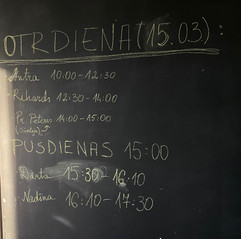 OTRDIENA (15.03) :
- Autra 10:00 - 12:30
- Rihards 12:30 - 14:00
- Pr. Pēteris 14:00 - 15:00
PUSDIENAS 15:00
- Dārta 15:30 - 16:10
- Nadīna 16:10 - 17:30